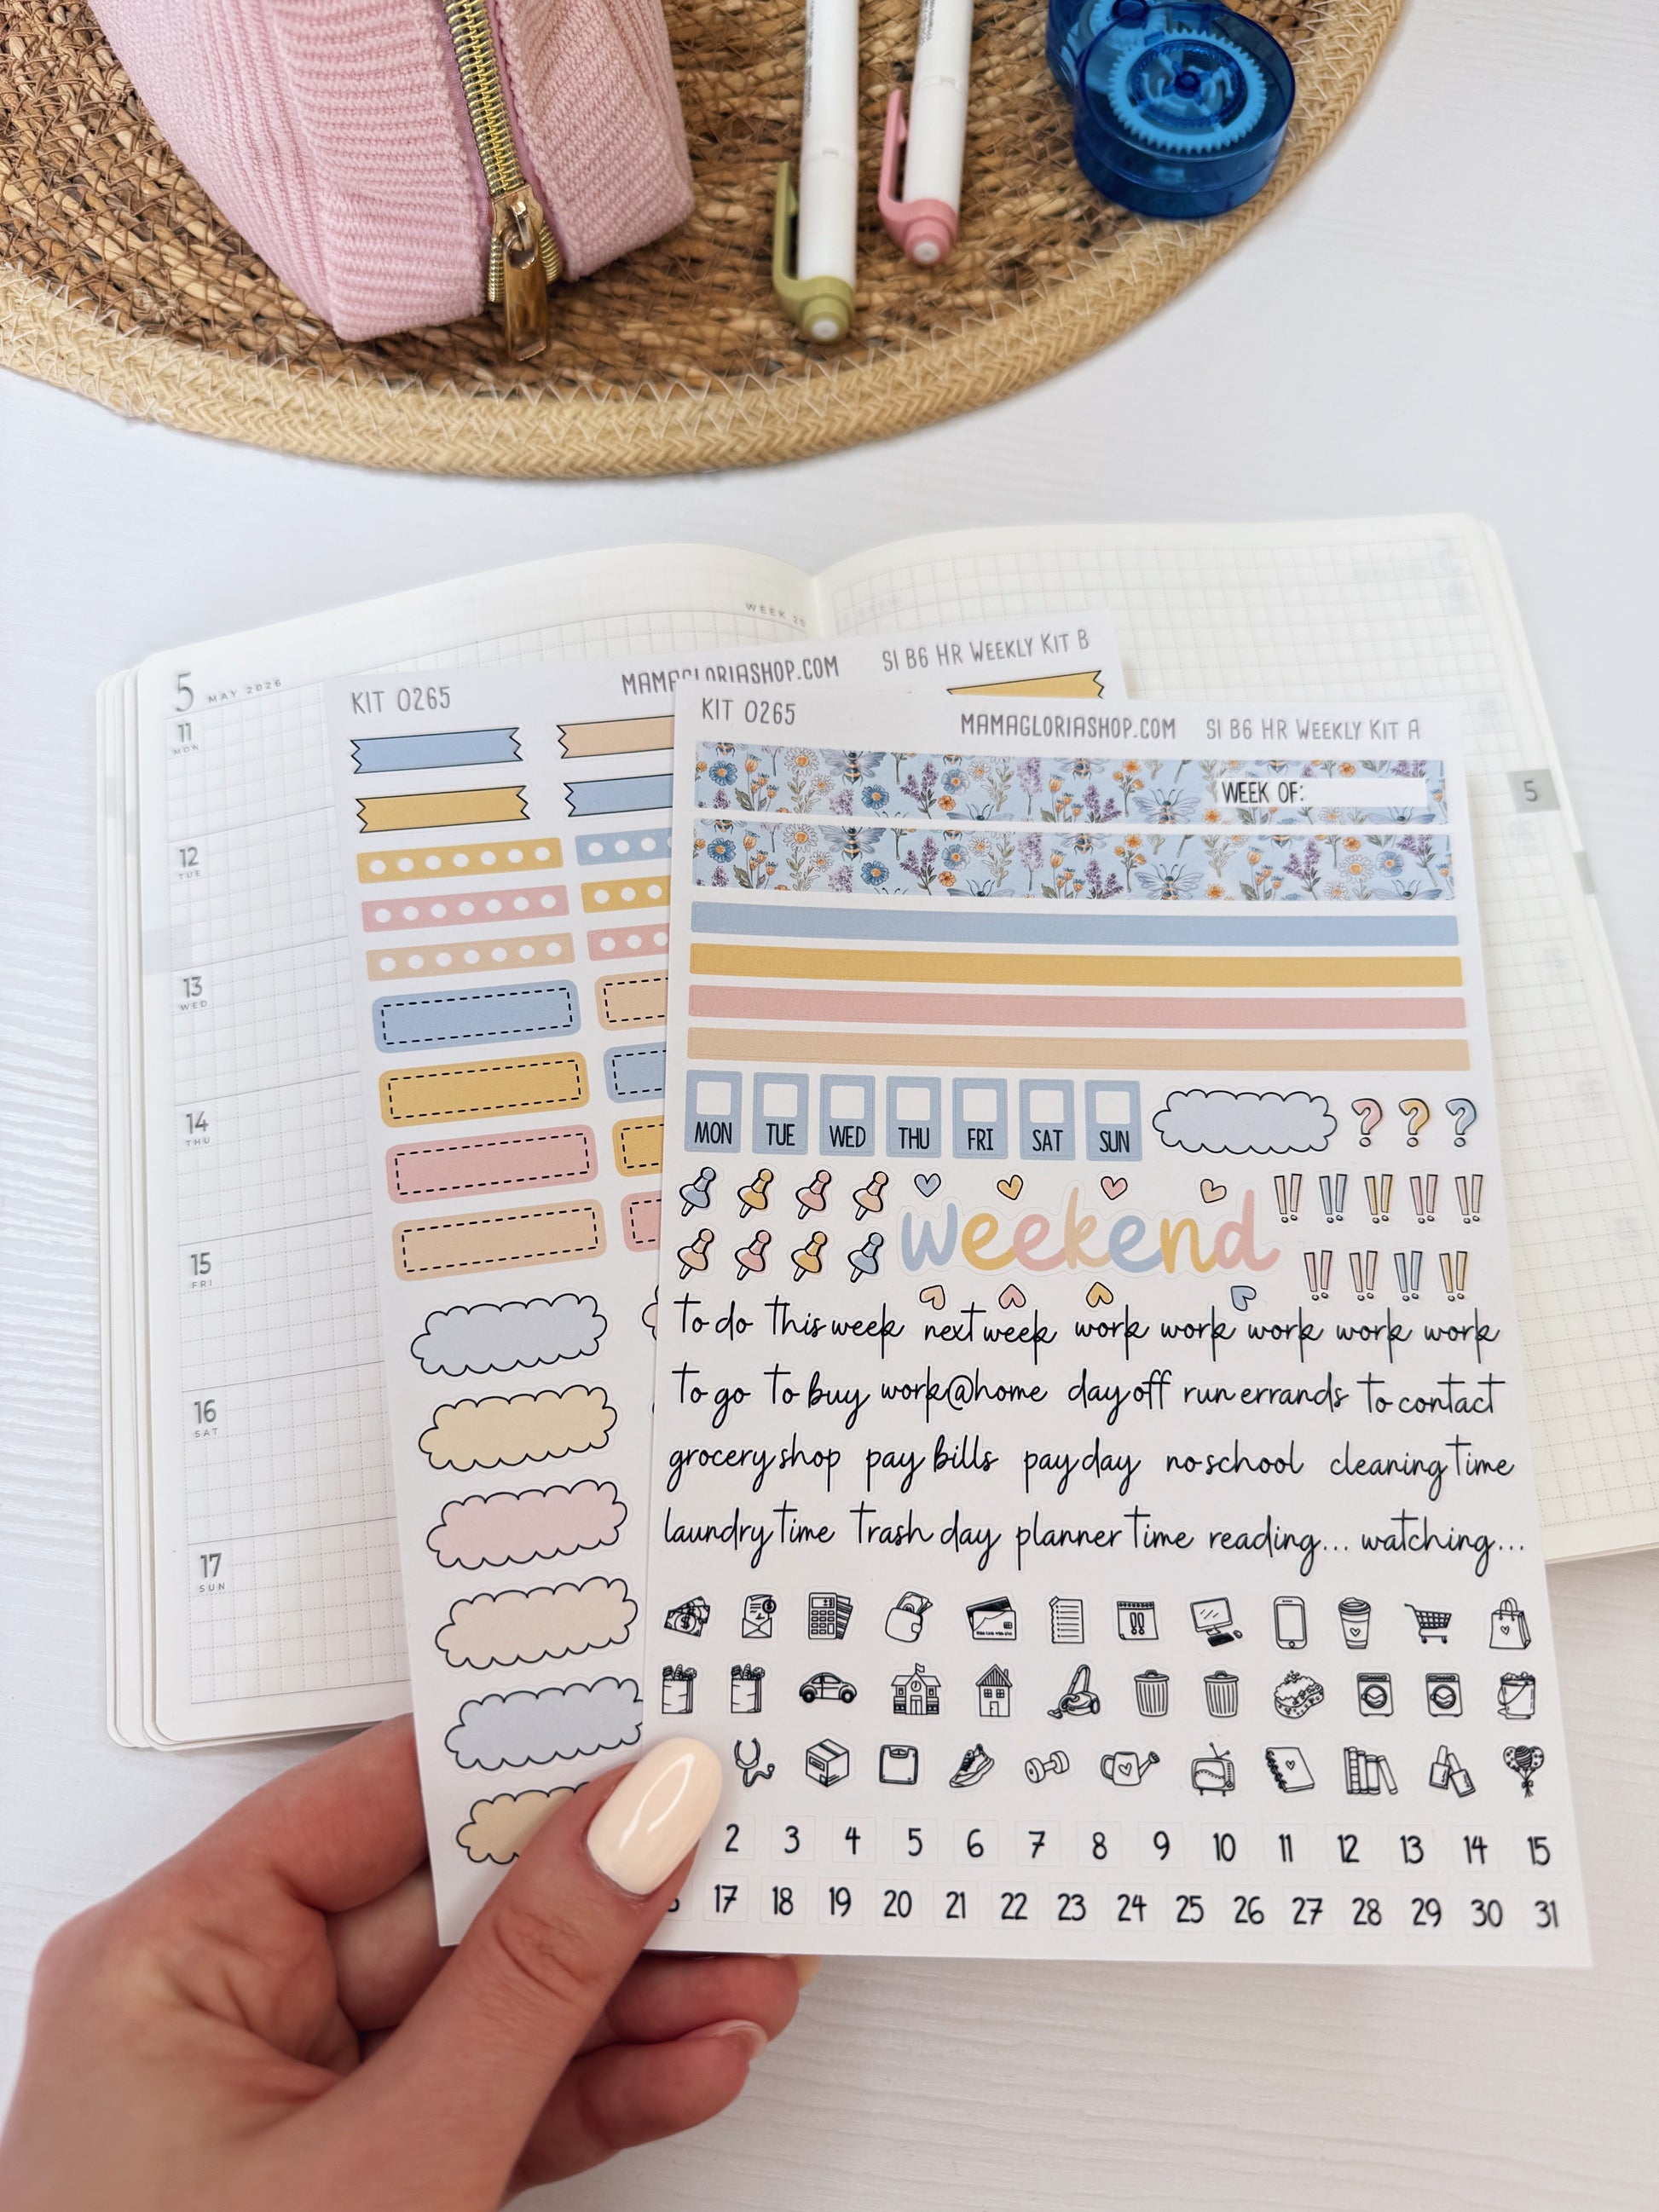 WEEK 20
5 MAY 2026
11
MON
12
TUE
13
WED
14
THU
15
FRI
16
SAT
17
SUN
5
KIT 0265 MAMAGLORIASHOP.COM SI B6 HR WEEKLY KIT B
KIT 0265 MAMAGLORIASHOP.COM SI B6 HR WEEKLY KIT A
WEEK OF:
MON TUE WED THU FRI SAT SUN ? ? ?
!! !! !! !! !!
weekend
!! !! !! !!
to do this week next week work work work work work
to go to buy work@home day off run errands to contact
grocery shop pay bills pay day no school cleaning time
laundry time trash day planner time reading... watching...
2 3 4 5 6 7 8 9 10 11 12 13 14 15
17 18 19 20 21 22 23 24 25 26 27 28 29 30 31